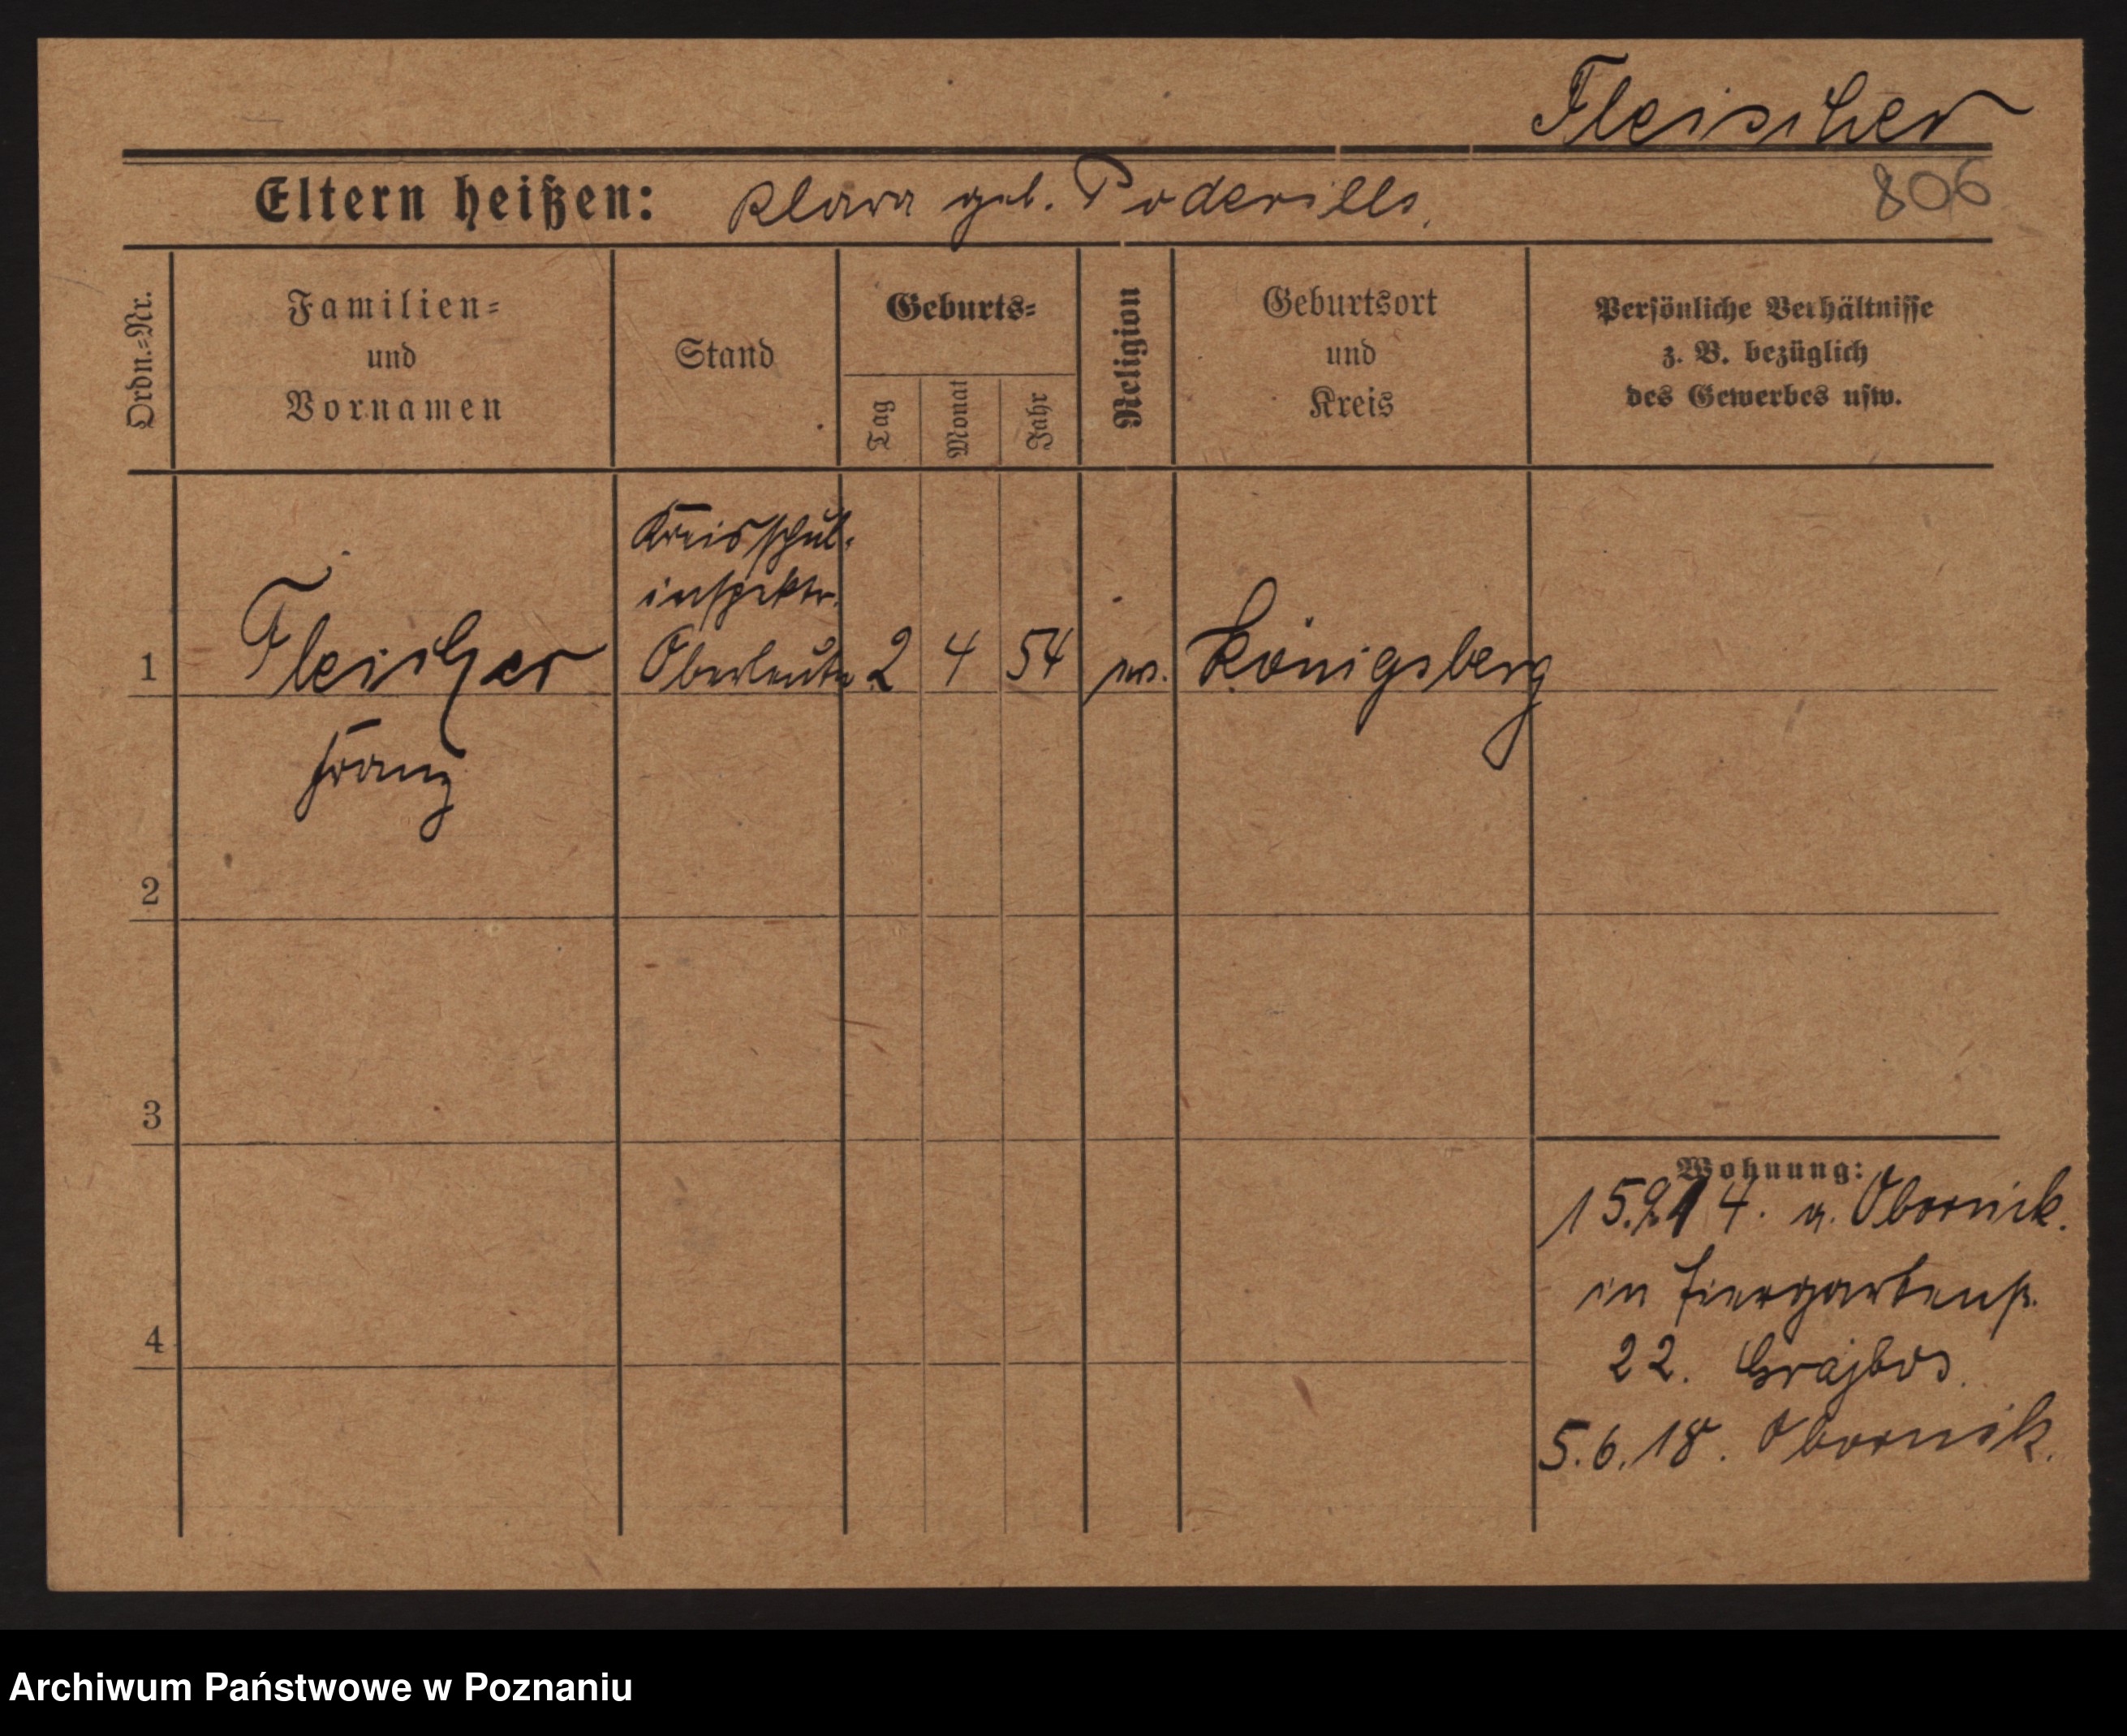 Fleischer
806
Eltern heißen: Klara geb.
Ordn.-Nr.
Familien- und Vornamen
Stand
Geburts-
Tag
Monat
Jahr
Religion
Geburtsort und Kreis
Persönliche Verhältnisse z. B. bezüglich des Gewerbes usw.
Kreisschul-
inspektor.
1 Fleischer Oberleutn. 2 4 54 Königsberg
Franz
2
3
4
Wohnung:
15.9.14. a. Obornik.
in Tiergartenstr.
22.
5.6.18. Obornik.
Archiwum Państwowe w Poznaniu